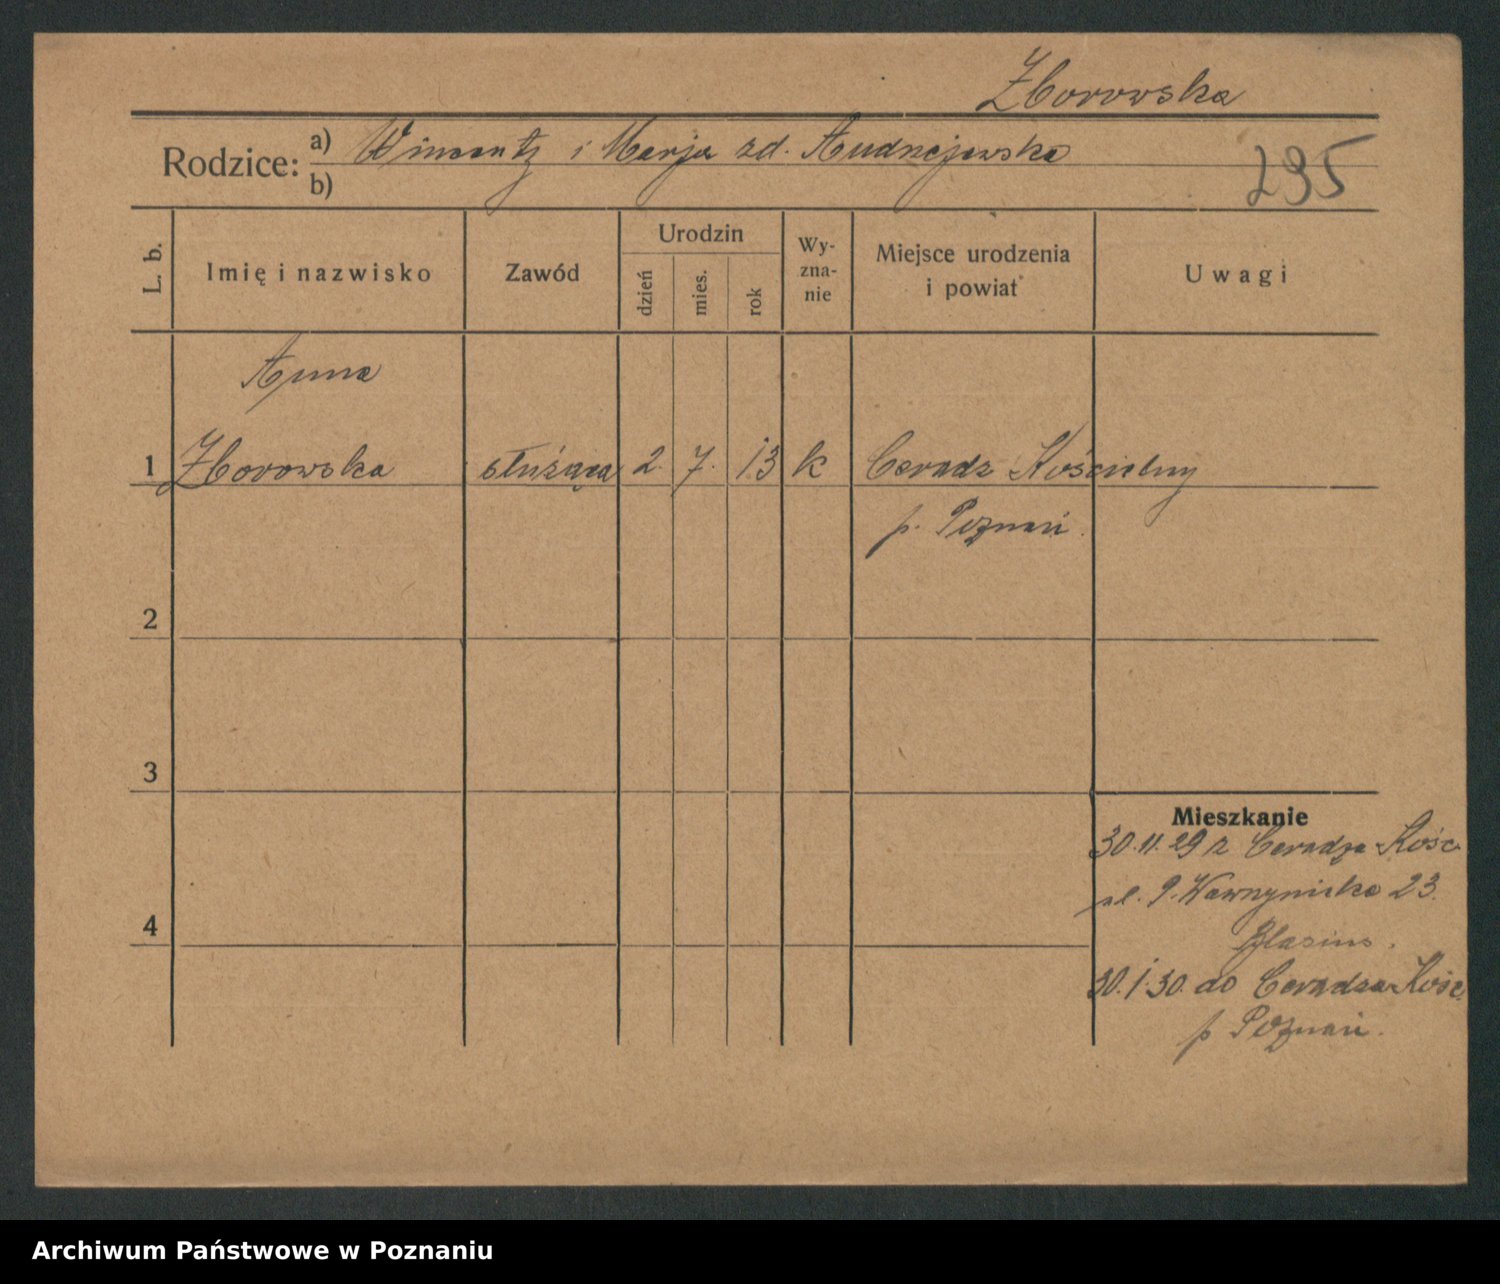 Zborowska
Rodzice: a) Wincenty i Marja zd. Andrzejewska
b)
295
L. b.
Imię i nazwisko
Zawód
Urodzin
dzień
mies.
rok
Wy-
zna-
nie
Miejsce urodzenia
i powiat
Uwagi
Anna
1 Zborowska służąca 2. 7. 13 k Ceradz Kościelny
p. Poznań.
2
3
4
Mieszkanie
30.11.29 z Ceradza Kośc.
23.
30.1.30. do Ceradza Kośc.
p Poznań.
Archiwum Państwowe w Poznaniu